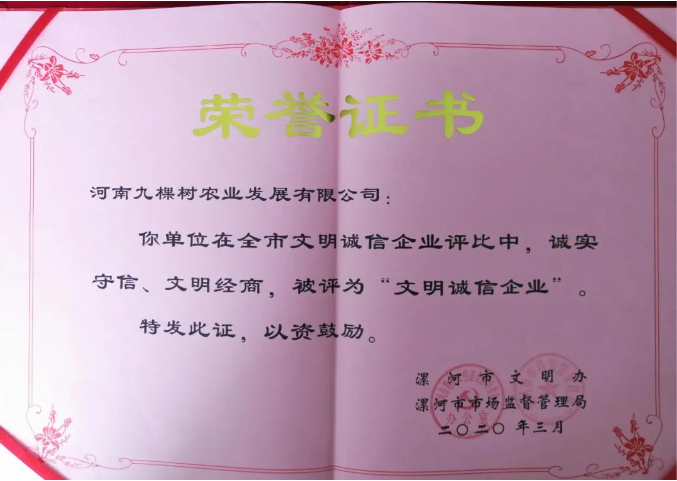 荣誉证书
河南九棵树农业发展有限公司：
你单位在全市文明诚信企业评比中，诚实
守信、文明经商，被评为“文明诚信企业”。
特发此证，以资鼓励。
漯河市文明办
漯河市市场监督管理局
二〇二〇年三月
办公室